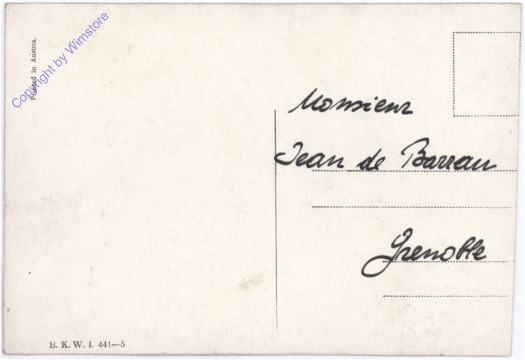 Printed in Austria.
Copyright by Wimstore
Monsieur
Jean de Barrau
Grenoble
B. K. W. I. 441—5